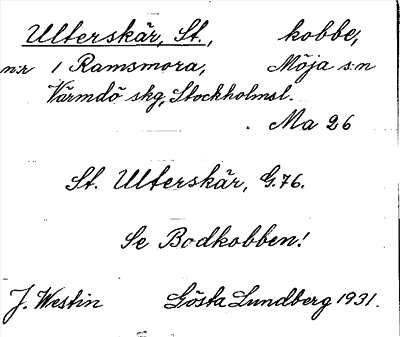 Ulterskär, St., kobbe,
n:r 1 Ramsmora, Möja s:n
Värmdö skg, Stockholmsl.
Ma 26
St. Ulterskär, G.76.
Se Bodkobben!
J. Westin Gösta Lundberg 1931.